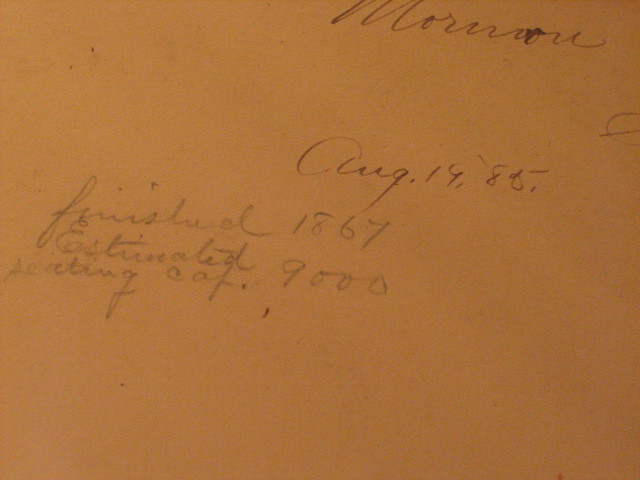 Mormon
Aug. 19, '85.
finished 1867
Estimated
seating cap. 9000